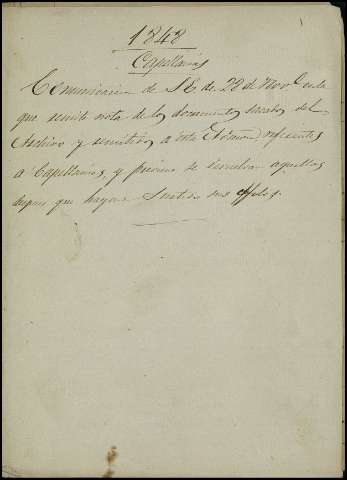 1848
Capellanias
Comunicacion de S.E. de 28 de Nov.e en la
que remite nota de los documentos sacados del
Archivo y remitidos a este referentes
a Capellanias, y previene se devuelvan aquellos
despues que hayan surtido sus efectos.